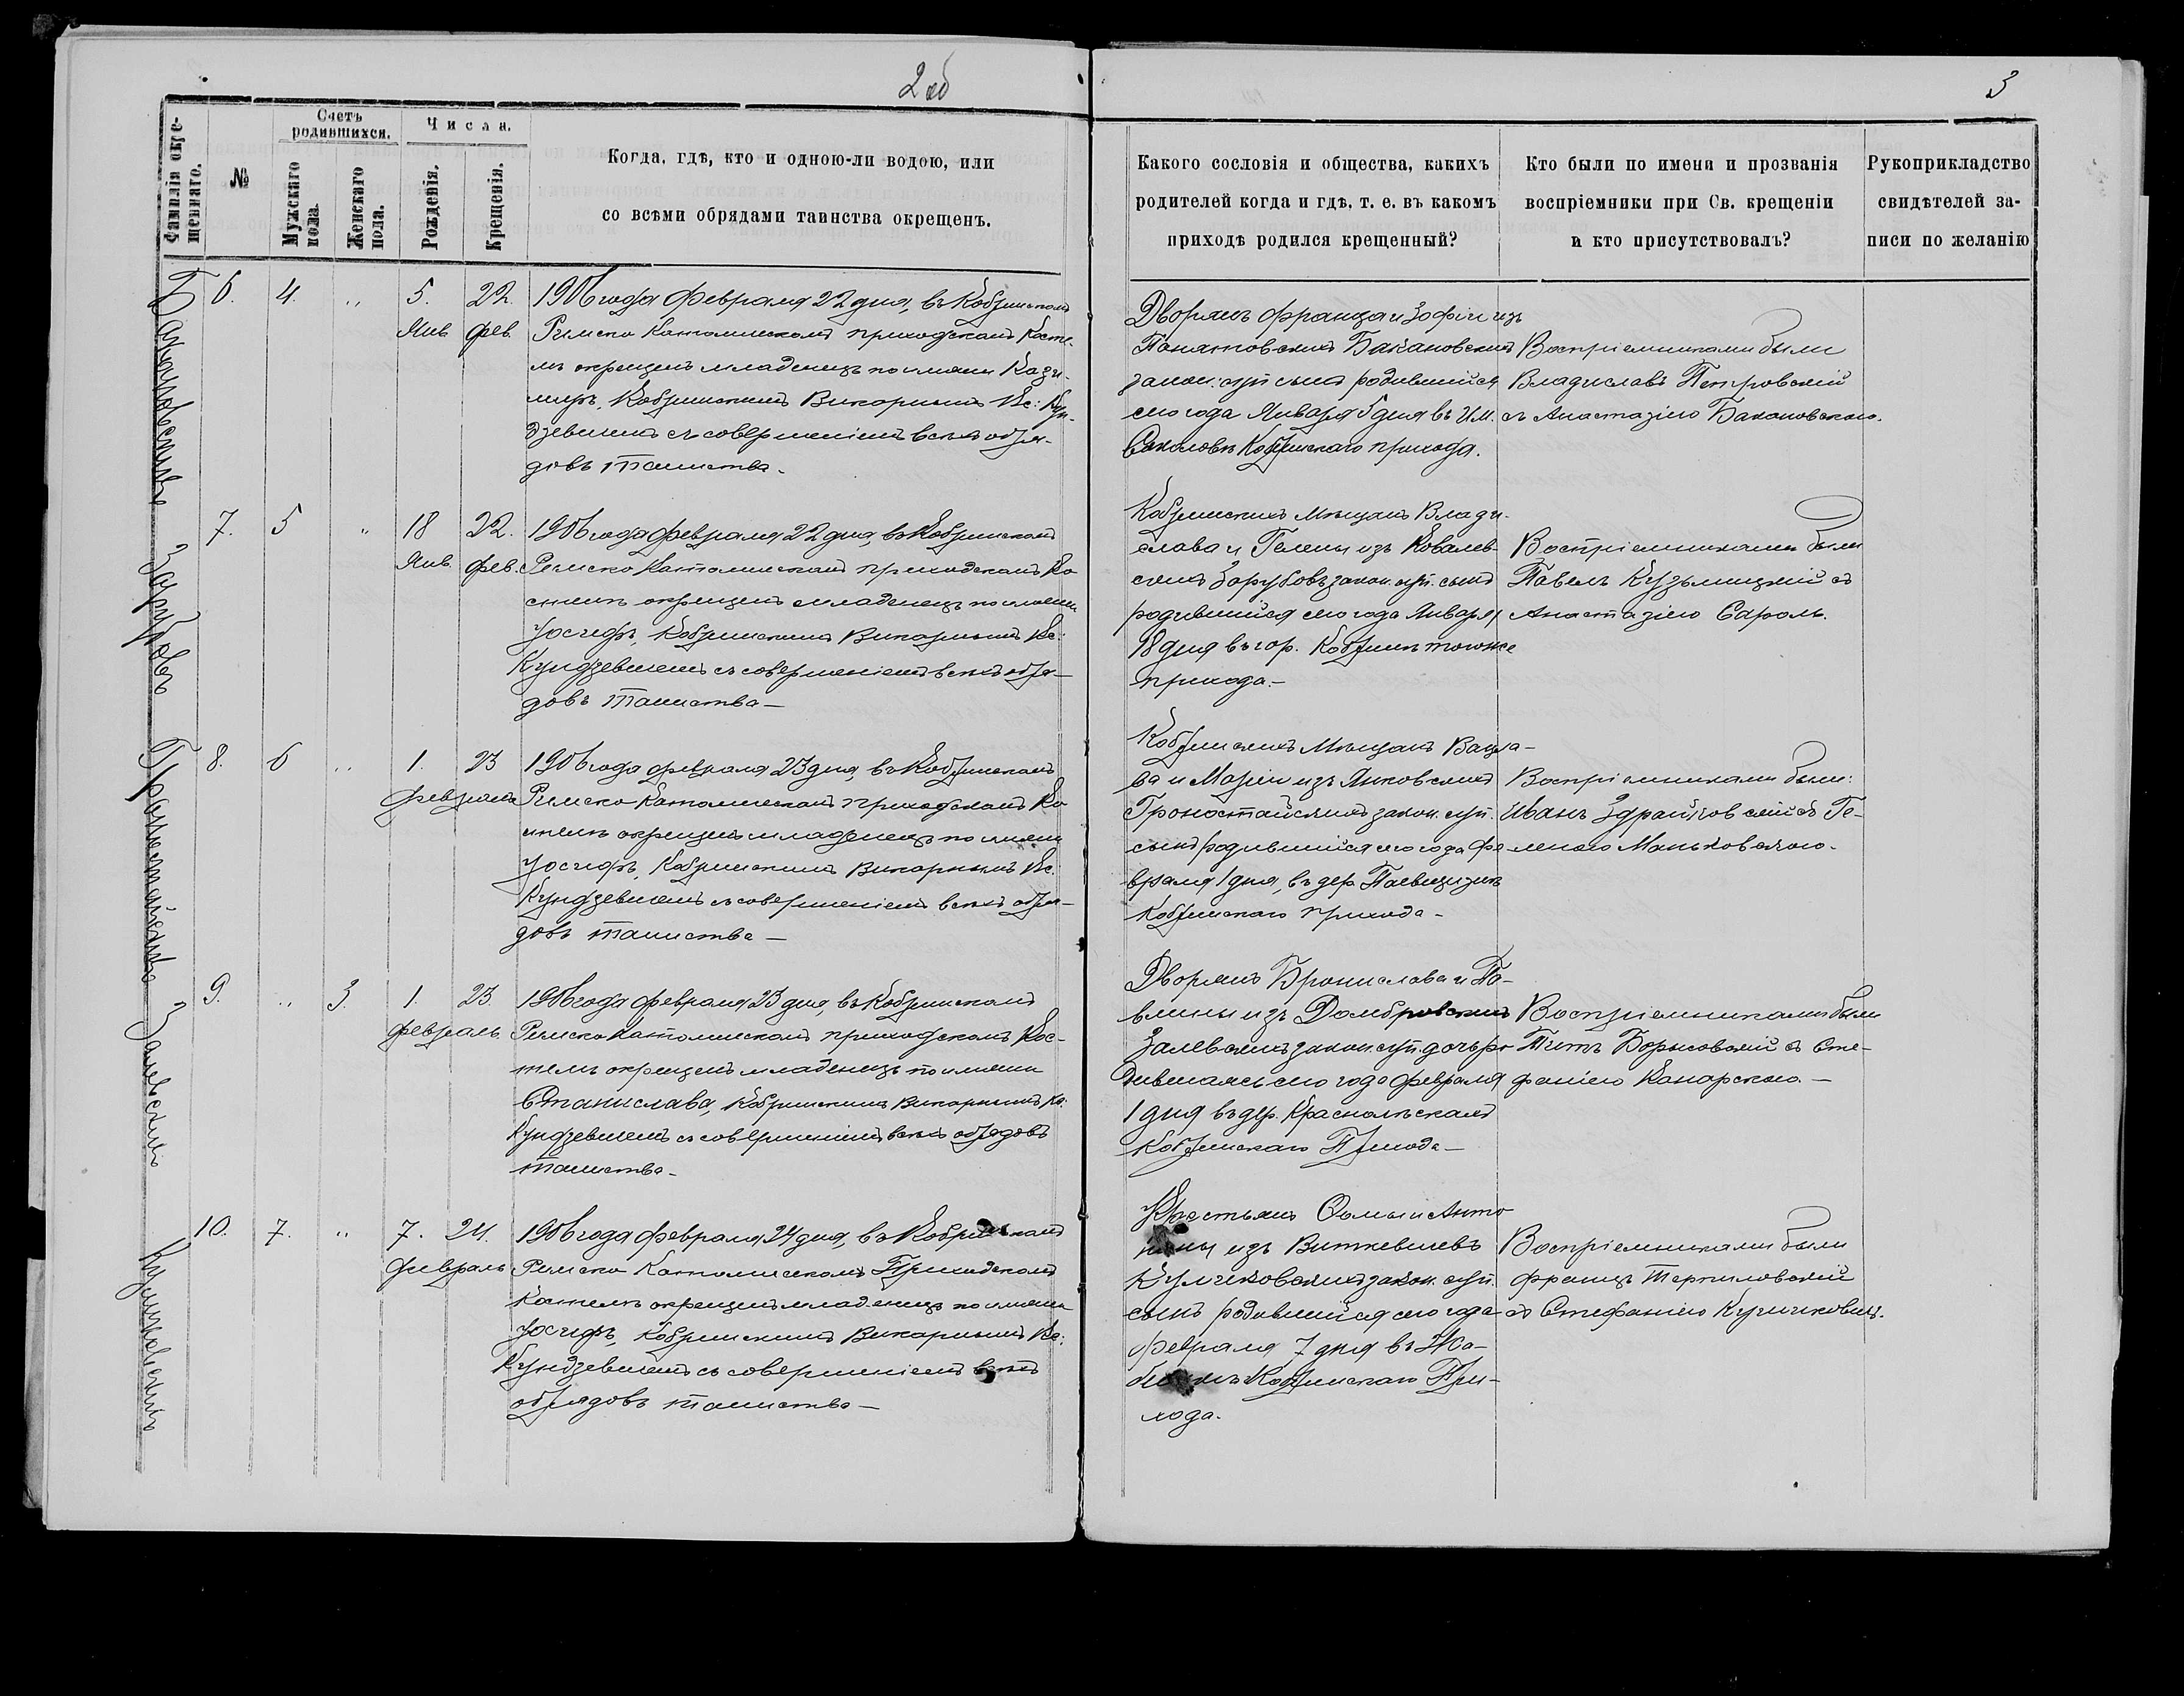 2 об
3
Фамилія окре-
щеннаго.
№
Счетъ
родившихся.
Мужскаго
пола.
Женскаго
пола.
Числа.
Рожденія.
Крещенія.
Когда, гдѣ, кто и одною-ли водою, или
со всѣми обрядами таинства окрещенъ.
Какого сословія и общества, какихъ
родителей когда и гдѣ, т. е. въ какомъ
приходѣ родился крещенный?
Кто были по имени и прозванія
воспріемники при Св. крещеніи
и кто присутствовалъ?
Рукоприкладство
свидѣтелей за-
писи по желанію
Бакановскій
6. 4. „ 5. Янв. 22. фев.
1906 года Февраля 22 дня, въ Кобринскомъ
Римско Католическомъ приходскомъ Косте-
лѣ окрещенъ младенецъ по имени Кази-
миръ, Кобринскимъ Викарнымъ Кс: Кун-
дзевичемъ съ совершеніемъ всѣхъ обря-
довъ таинства.
Дворянъ Франца и Зофіи изъ
Понятовскихъ Бакановскихъ
закон. суп. сынъ родившійся
сего года Января 5 дня въ им.
Соколовѣ Кобринскаго прихода.
Воспріемниками были
Владиславъ Петровскій
съ Анастазіею Бакановскою.
Зарубовъ
7. 5 „ 18 Янв. 22. фев.
1906 года Февраля 22 дня, въ Кобринскомъ
Римско Католическомъ приходскомъ Ко
стелѣ окрещенъ младенецъ по имени
Іосифъ, Кобринскимъ Викарнымъ Кс:
Кундзевичемъ съ совершеніемъ всѣхъ обря-
довъ таинства —
Кобринскихъ Мѣщанъ Влади-
слава и Гелены изъ Ковалев-
скихъ Зарубовъ закон. суп. сынъ
родившійся сего года Января
18 дня въ гор. Кобринѣ тогоже
прихода. —
Воспріемниками были
Павелъ Кузьмицкій съ
Анастазіею Сароль.
Гроностайскій
8. 6 „ 1. 23 Февраль
1906 года Февраля 23 дня, въ Кобринскомъ
Римско Католическомъ приходскомъ Ко
стелѣ окрещенъ младенецъ по имени
Іосифъ, Кобринскимъ Викарнымъ Кс.
Кундзевичемъ съ совершеніемъ всѣхъ обря-
довъ таинства —
Кобринскихъ Мѣщанъ Вацла-
ва и Маріи изъ Янковскихъ
Гроностайскихъ закон. суп.
сынъ родившійся сего года Фе
враля 1 дня, въ дер.
Кобринскаго прихода —
Воспріемниками были:
Иванъ съ Ге-
леною Маньковскою.
Залевскій
9. „ 3. 1. 23 Февраль.
1906 года Февраля 23 дня, въ Кобринскомъ
Римско Католическомъ приходскомъ Кос-
телѣ окрещенъ младенецъ по имени
Станислава, Кобринскимъ Викарнымъ Кс:
Кундзевичемъ съ совершеніемъ всѣхъ обрядовъ
таинства —
Дворянъ Бронислава и Па-
влины изъ Домбровскихъ
Залевскихъ закон. суп. дочь ро
дившаяся сего года Февраля
1 дня въ дер.
Кобринскаго Прихода —
Воспріемниками были
Титъ Борысовскій съ Сте-
фаніею Канарскою. —
Кульчковскій
10. 7. „ 7. 24. Февраль
1906 года Февраля 24 дня, въ Кобринскомъ
Римско Католическомъ Приходскомъ
Костелѣ окрещенъ младенецъ по имени
Іосифъ, Кобринскимъ Викарнымъ Кс:
Кундзевичемъ съ совершеніемъ всѣхъ
обрядовъ таинства —
Крестьянъ Ѳомы и Анто
нины изъ Виткевичевъ
закон. суп.
сынъ родившійся сего года
Февраля 7 дня въ
Кобринскаго При-
хода.
Воспріемниками были
Францъ Терпиловскій
съ Стефаніею